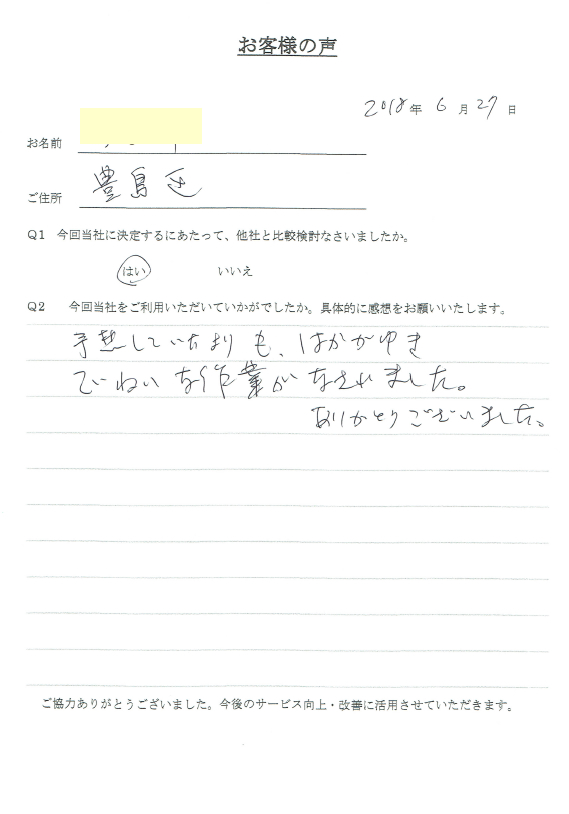 お客様の声
2018年 6月 27日
お名前
ご住所 豊島区
Q1 今回当社に決定するにあたって、他社と比較検討なさいましたか。
はい いいえ
Q2 今回当社をご利用いただいていかがでしたか。具体的に感想をお願いいたします。
予想していたよりも、はかがゆき
ていねいな作業がなされました。
ありがとうございました。
ご協力ありがとうございました。今後のサービス向上・改善に活用させていただきます。